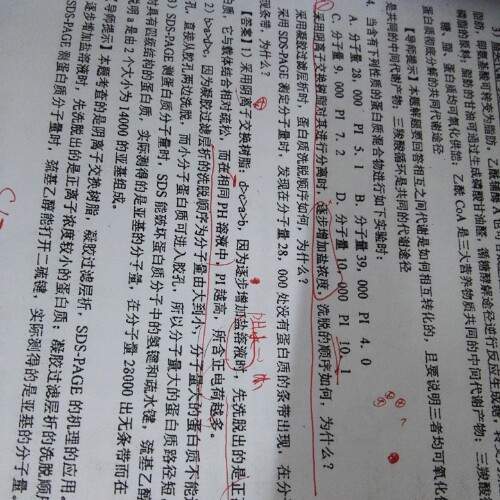 脂肪，同氨基酸可转变为脂肪，乙酰
磷酸的原料，脂肪酸甘油可通过生成磷酸甘油醛，循糖酵解途径逆行反应生成糖
糖、脂、蛋白质均可氧化供能：乙酰 CoA 是三大营养物质共同的中间代谢产物；三羧酸
蛋白质彻底分解的共同代谢途径
【导师提示】本题解题要回答相互之间代谢是如何相互转化的，且要说明三者均可氧化
是共同的中间代谢产物；三羧酸循环是共同的代谢途径
4. 当含有下列性质的蛋白质混合物进行如下实验时，
A. 分子量 28, 000 PI 5. 1 B. 分子量 39, 000 PI 4. 0
C. 分子量 9, 000 PI 7. 2 D. 分子量 10, 000 PI 10. 1
采用阴离子交换树脂对其进行分离时，逐步增加盐浓度，洗脱的顺序如何，为什么？
采用凝胶过滤层析时，蛋白质洗脱顺序如何，为什么？
采用 SDS-PAGE 测定分子量时，发现在分子量 28, 000 处没有蛋白质的条带出现，在分
现条带，为什么？
【答案】1）采用阴离子交换树脂：d>c>a>b，因为逐步增加盐溶液时，先洗脱出的是正
白质，它与载体结合相对疏松，而在相同 PH 溶液中，PI 越高，所含正电荷越多。
2）b>a>d>c，因为凝胶过滤层析的洗脱顺序为分子量由大到小，分子量大的蛋白质不能
孔，直接从胶粒两边洗脱，而小分子蛋白质可进入胶孔，所以分子量大的蛋白质路径短
3）SDS-PAGE 测蛋白质分子量时，SDS 能破坏蛋白质分子中的氢键和疏水键，巯基乙醇
对具有四级结构的蛋白质，实际测得的是亚基的分子量，在分子量 28000 出无条带而在
说明 a 是由 2 个大小为 14000 的亚基组成。
【导师提示】本题考查的是阴离子交换树脂，凝胶过滤层析，SDS-PAGE 的机理的应用。
逐步增加盐溶液时，先洗脱出的是正离子浓度较小的蛋白质：凝胶过滤层析的洗脱顺
SDS-PAGE 测蛋白质分子量时，巯基乙醇能打开二硫键，实际测得的是亚基的分子量。